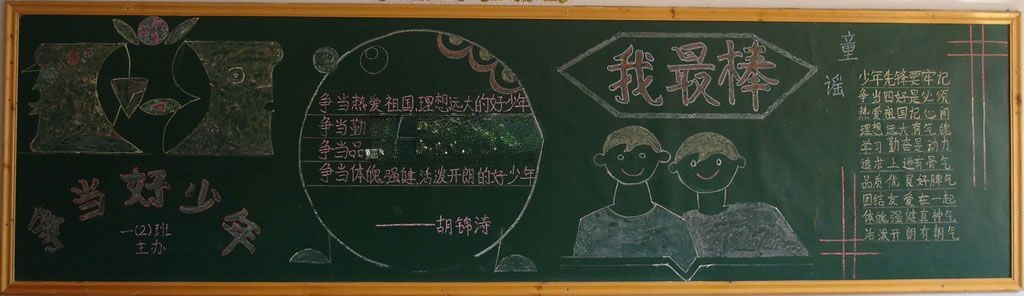 争当好少年
一(2)班
主办
争当热爱祖国,理想远大的好少年
争当勤
争当品
争当体魄强健,活泼开朗的好少年
——胡锦涛
我最棒
童谣
少年先锋要牢记
争当四好是必须
热爱祖国记心间
理想远大有气魄
学习勤奋是动力
追求上进有骨气
品质优良好脾气
团结友爱在一起
体魄强健真神气
活泼开朗有朝气